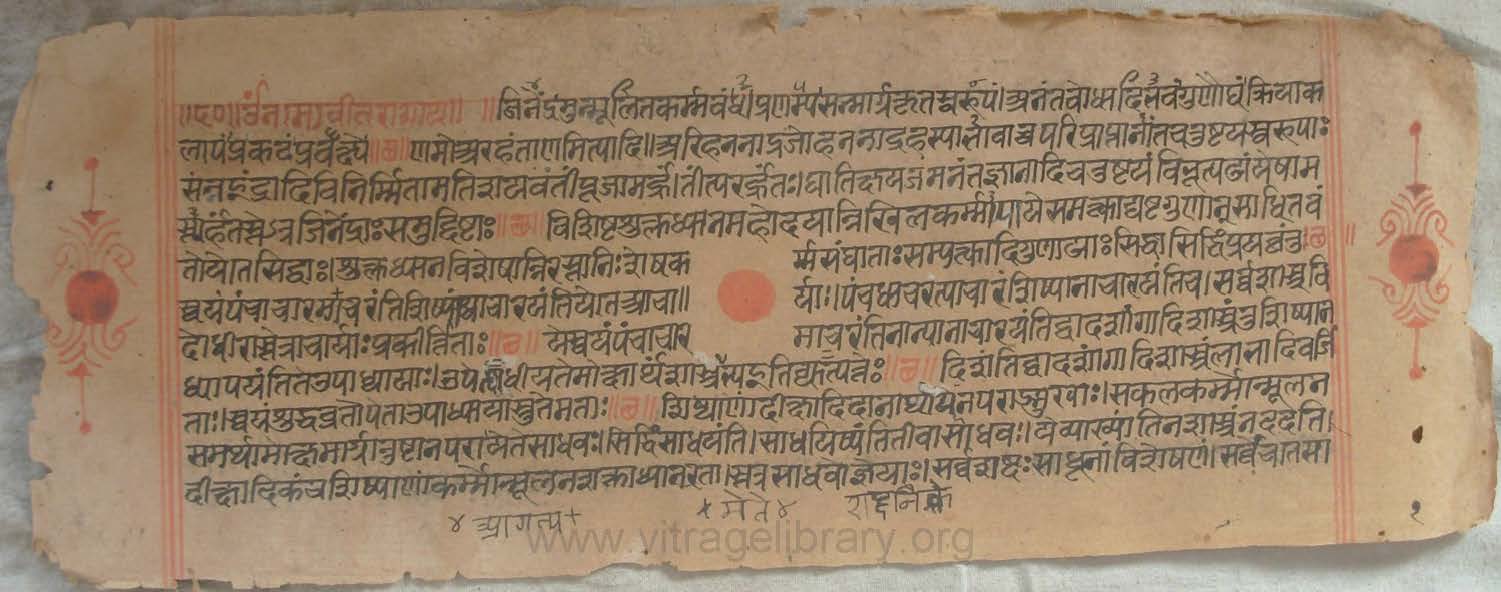 ॥८०॥ ॐनमः वीतरागाय॥ ॥जिनेंद्रमुन्मूलितकर्म्मबंधं।प्रणम्य सन्मार्गकृतस्वरूपं।अनंतबोधादिभवंगुणौघं क्रियाक
लापं प्रकटं प्रवक्ष्ये॥छ॥ णमोअरहंताणमित्यादि॥अरिहननाद्रजोहननाद्रहस्याभावाच्च परिप्राप्तानंतचतुष्टयस्वरूपाः
संतइंद्रादिविनिर्म्मितामतिशयवंतीं पूजामर्हंतीत्यरर्हंतः।घातिक्षयजमनंतज्ञानादिचतुष्टयं विभूत्यढ्यं येषाम
स्त्यर्हंतस्तेऽत्र जिनेंद्राः समुद्दिष्टाः॥छ॥ विशिष्टशुक्लध्यानमहोदयान्निखिलकर्म्मापाये सम्यक्त्वाद्यष्टगुणान् साधितवं
तो येते सिद्धाः।शुक्लध्यानविशेषान्निरस्तनिःशेषक र्म्मसंघाताः सम्यक्त्वादिगुणाढ्याः सिद्धाः सिद्धिं प्रयच्छंतु॥छ॥
स्वयं पंचाचारमाचरंति शिष्यांश्चाचारयंति ये ते आचा॥ र्याः।पंचधाचरत्याचारं शिष्यानाचारयंति च।सर्वशास्त्रवि
दो धीरास्तेत्राचार्याः प्रकीर्त्तिताः॥छ॥ ये स्वयं पंचाचार माचरंति नान्यानाचारयंति द्वादशांगादिशास्त्रं तु शिष्यान
ध्यापयंति ते उपाध्यायाः।उपेत्याधीयते मोक्षार्थं शास्त्रमेतेभ्य इति व्युत्पत्तेः॥छ॥ दिशंति द्वादशांगादिशास्त्रं लाभादिवर्जि
ताः।स्वयं शुद्धव्रतोपेता उपाध्यायास्तु ते मताः॥छ॥ शिष्याणां दीक्षादिदानाध्यापनपराङ्मुखाः।सकलकर्म्मोन्मूलन
समर्थमोक्षमार्गानुष्ठानपरा ये ते साधवः।सिद्धिं साधयंति।साधयिष्यंतीति वा साधवः।ये व्याख्यांति न शास्त्रं न ददति।
दीक्षादिकं च शिष्याणां कर्म्मोन्मूलनशक्ता ध्यानरतास्तेत्र साधवो ज्ञेयाः।सर्वशब्दः साधूनां विशेषणं।सर्वे च ते सा
४ आगत्य+ ×मे ते ४
१
www.vitragelibrary.org